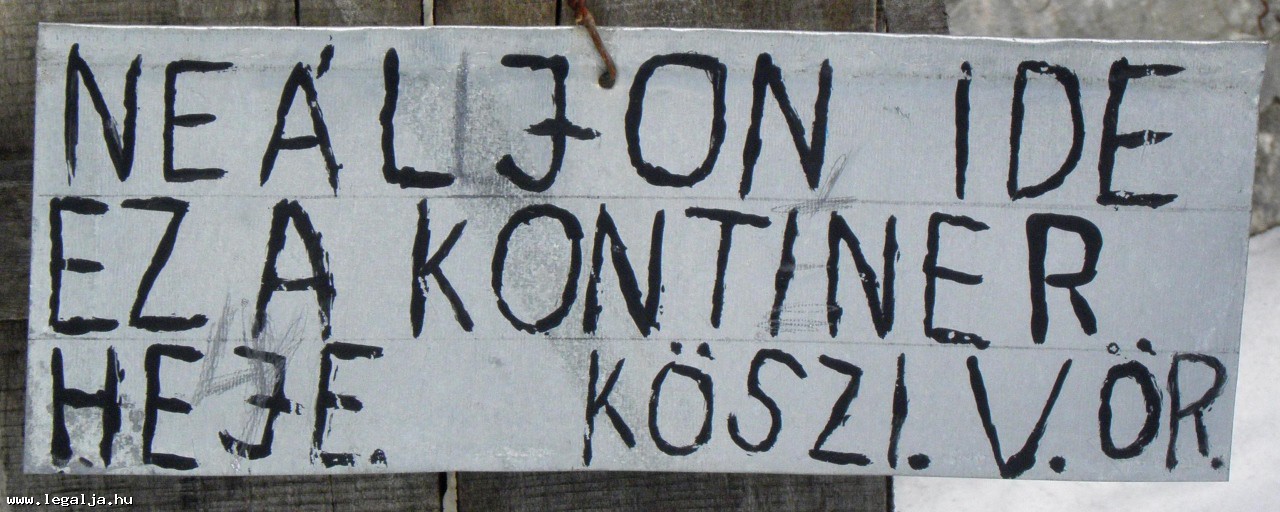 NEÁLJON IDE
EZ A KONTINER
HEJE. KÖSZI. V. ÖR.
www.legalja.hu